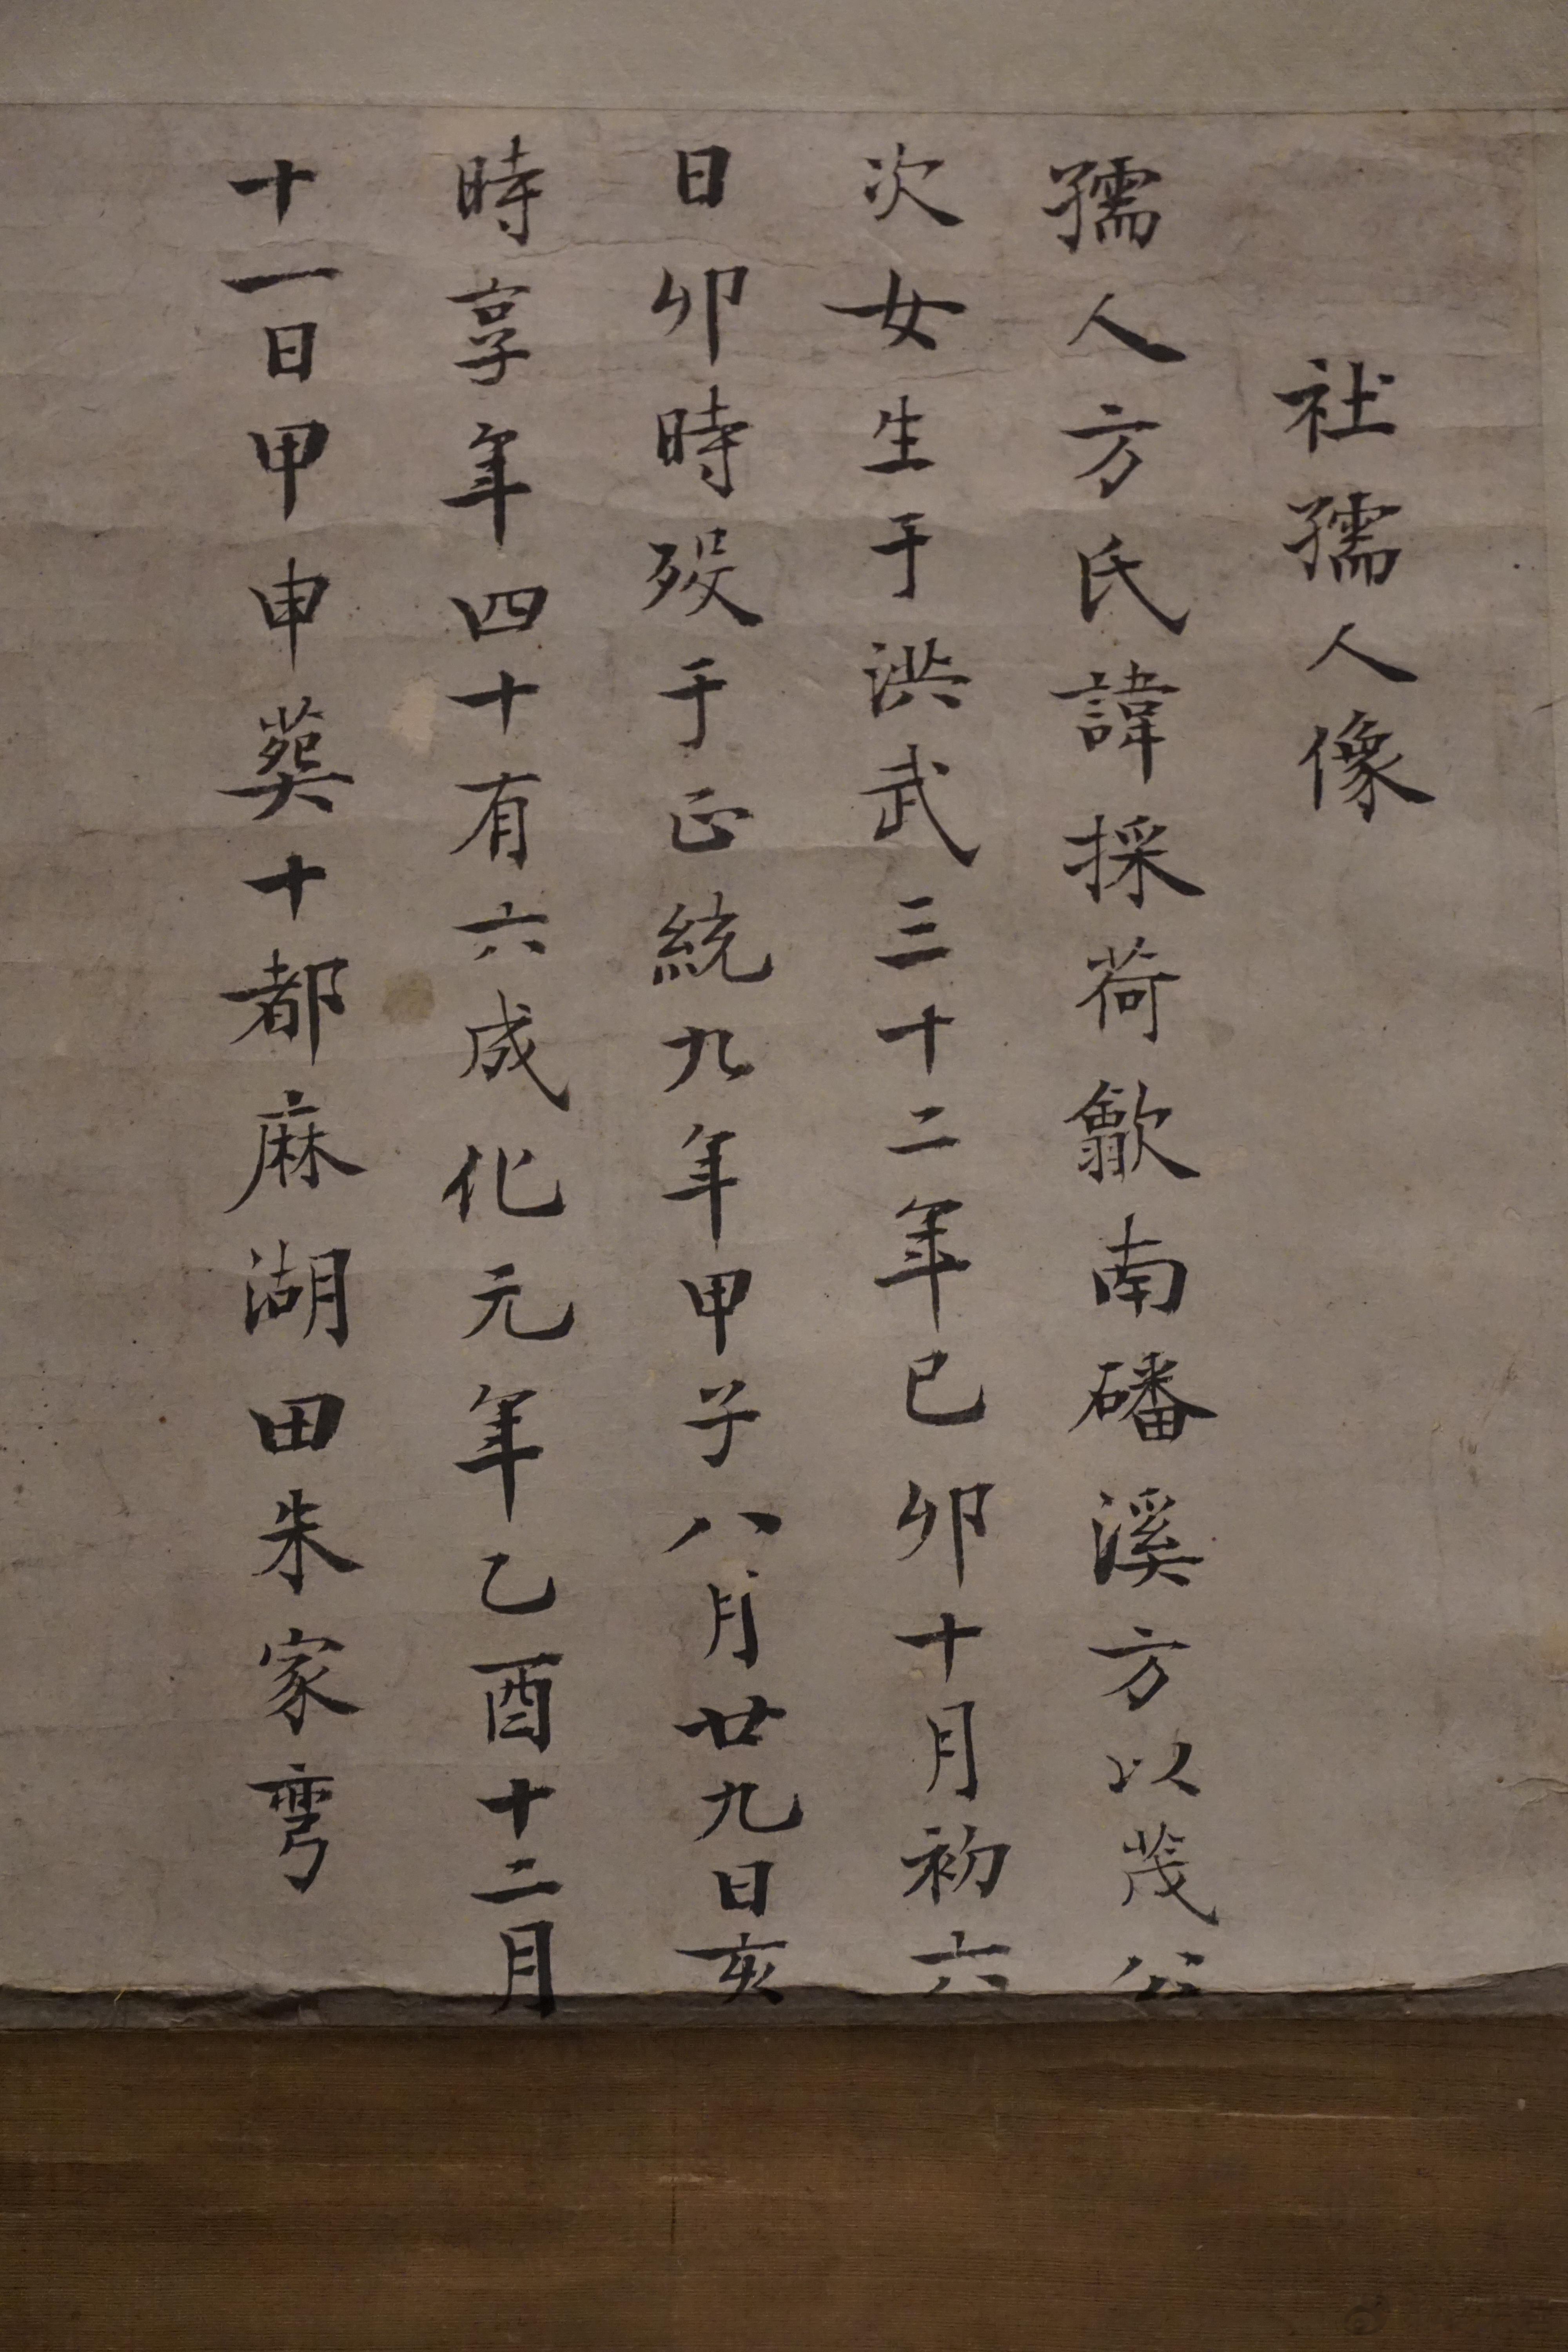 社孺人像
孺人方氏諱採荷歙南磻溪方以茂公
次女生于洪武三十二年已卯十月初六
日卯時歿于正統九年甲子八月廿九日亥
時享年四十有六成化元年乙酉十二月
十一日甲申葬十都麻湖田朱家弯